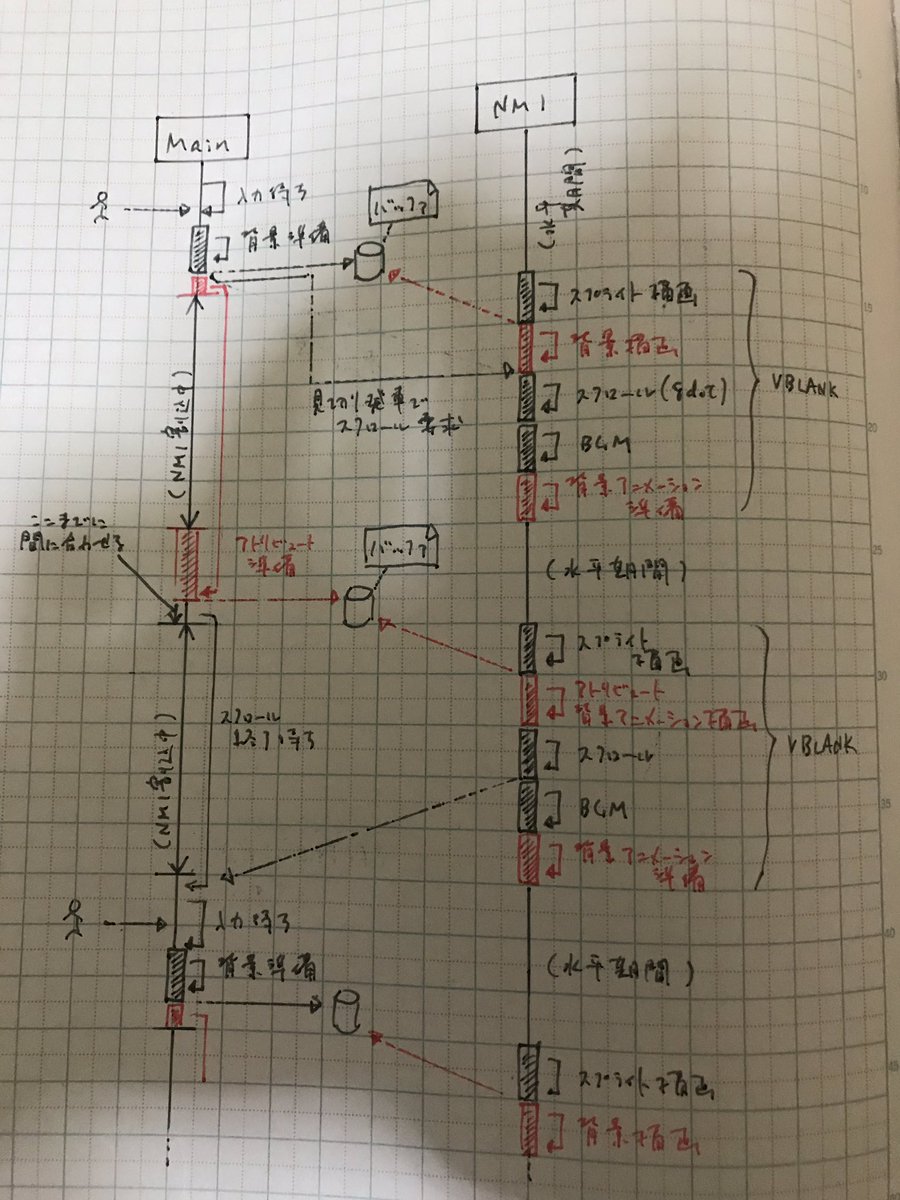 NMI
Main
(水平期間)
入力待ち
バッファ
背景準備
スプライト描画
背景描画
VBLANK
見切り発車で
スクロール要求
スクロール(8dot)
BGM
(NMI割込中)
背景アニメーション
準備
ここまでに
間に合わせる
アトリビュート
準備
バッファ
(水平期間)
スプライト
描画
アトリビュート
背景アニメーション描画
スクロール
待ち
スクロール
VBLANK
(NMI割込中)
BGM
背景アニメーション
準備
入力待ち
背景準備
(水平期間)
スプライト描画
背景描画